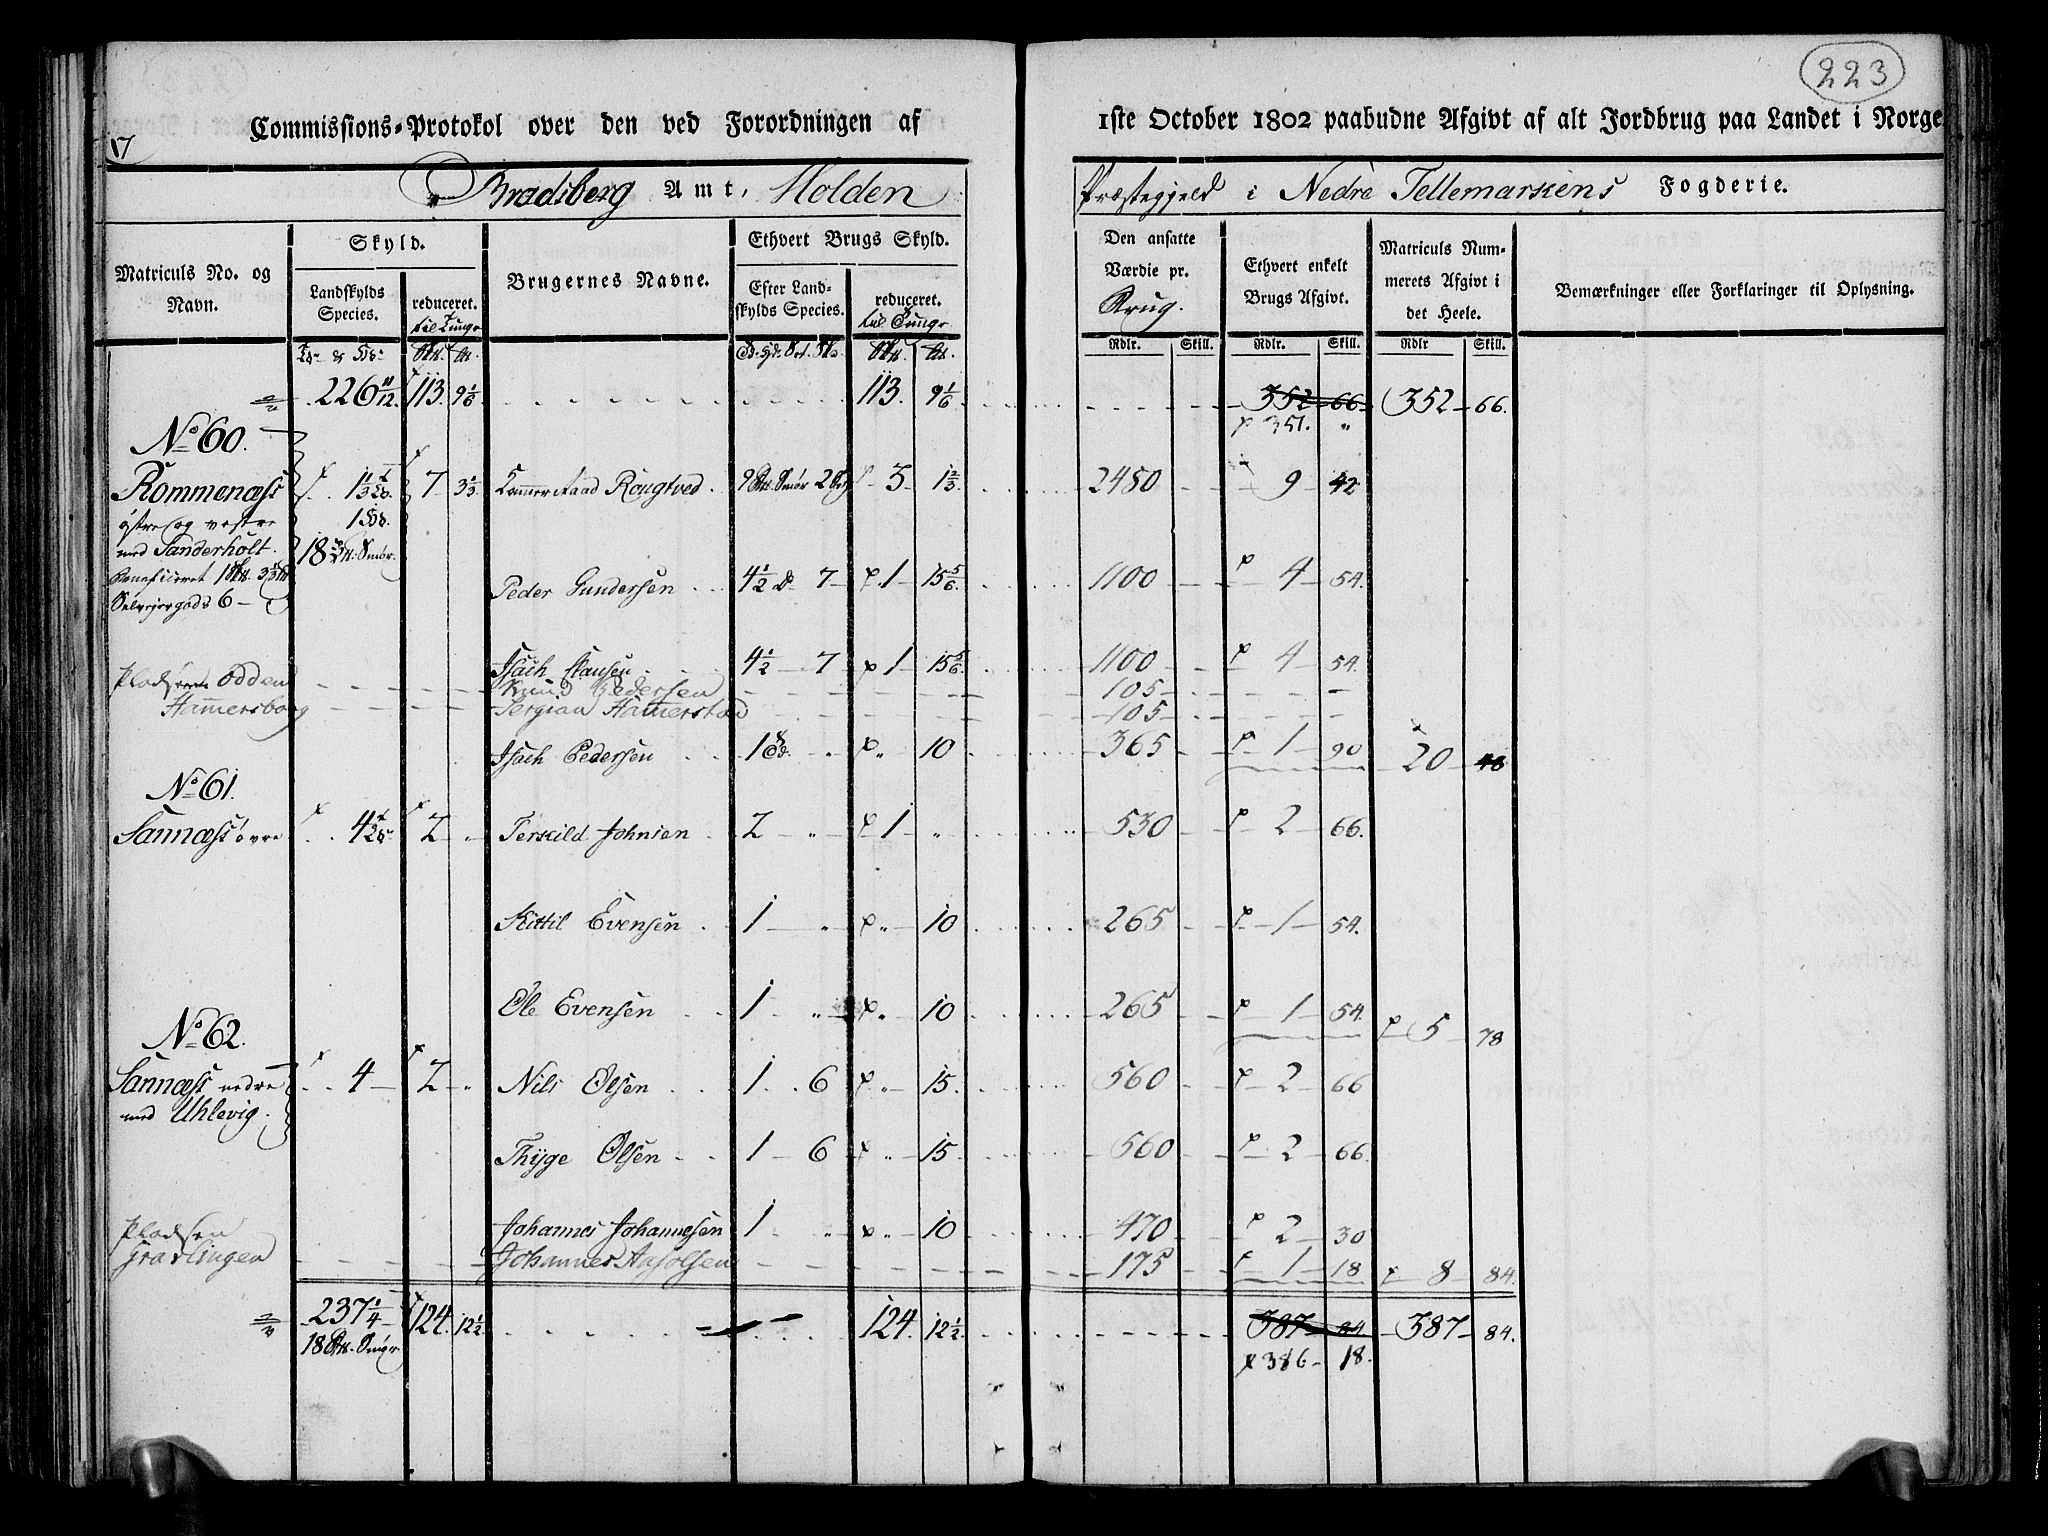 223
Commissions-Protokol over den ved Forordningen af 1ste October 1802 paabudne Afgivt af alt Jordbrug paa Landet i Norge
17
Bradsberg Amt, Holden Præstegjeld i Nedre Tellemarkens Fogderie.
Matriculs No. og Navn.
Skyld.
Landskylds Species.
reduceret. til Tunge
Brugernes Navne.
Ethvert Brugs Skyld.
Efter Landskylds Species.
reduceret. til Tunge
Den ansatte Værdie pr. Brug.
Ethvert enkelt Brugs Afgivt.
Matriculs Nummerets Afgivt i det Heele.
Bemærkninger eller Forklaringer til Oplysning.
Rdlr. Skill. Rdlr. Skill. Rdlr Skill.
226 11/12. 113. 9 1/6 113. 9 1/6 352 66 352 66.
351. "
No 60.
Rommenæss 7 3 1/3 Rougtved 3 1 2/3 2450 9 42
østre og vestre
med Sanderholt. 18 Smør.
Beneficeret
Selveiergods 6
Peder Gundersen 4 1/2 7 1 15 5/6 1100 4 54.
Isach Hansen 4 1/2 7 1 15 5/6 1100 4 54.
Pladsene Odden Knud Pedersen 105
Hamersborg 105
Isach Pedersen 1 10 365 1 90 20 48
No 61.
Sannæss øvre 4 2 " Terkild Johnsen 2 " 1 " 530 2 66.
Kittil Evensen 1 " " 10 265 1 54.
Ole Evensen 1 " " 10 265 1 54. 5 78
No 62.
Sannæss nedre 4 2 " Nils Olsen 1 6 " 15. 560 2 66
med Uhlevig.
Thyge Olsen 1 6 " 15. 560 2 66.
Johannes Johannesen 1 " " 10 470 2 30
Pladsen
Graslingen Johannes 175 1 18 8 84.
237 1/4 124. 12 1/2 124. 12 1/2 387 84 387 84.
18 Smør 386 18.